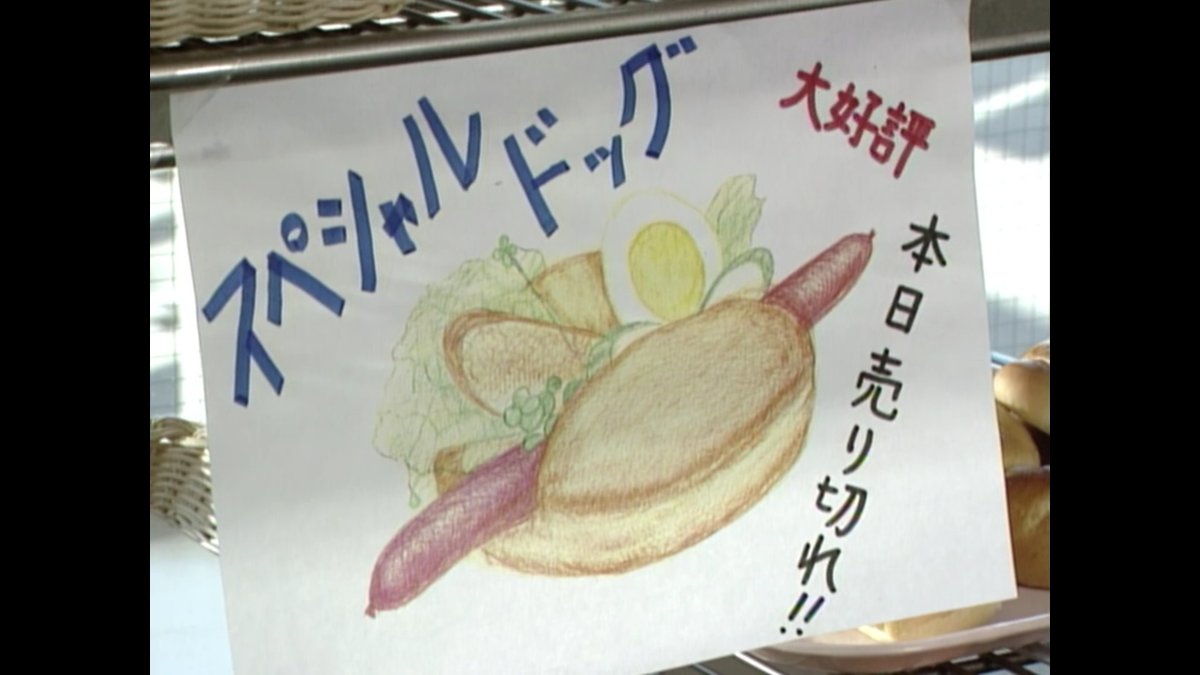 スペシャルドッグ
大好評
本日売り切れ!!